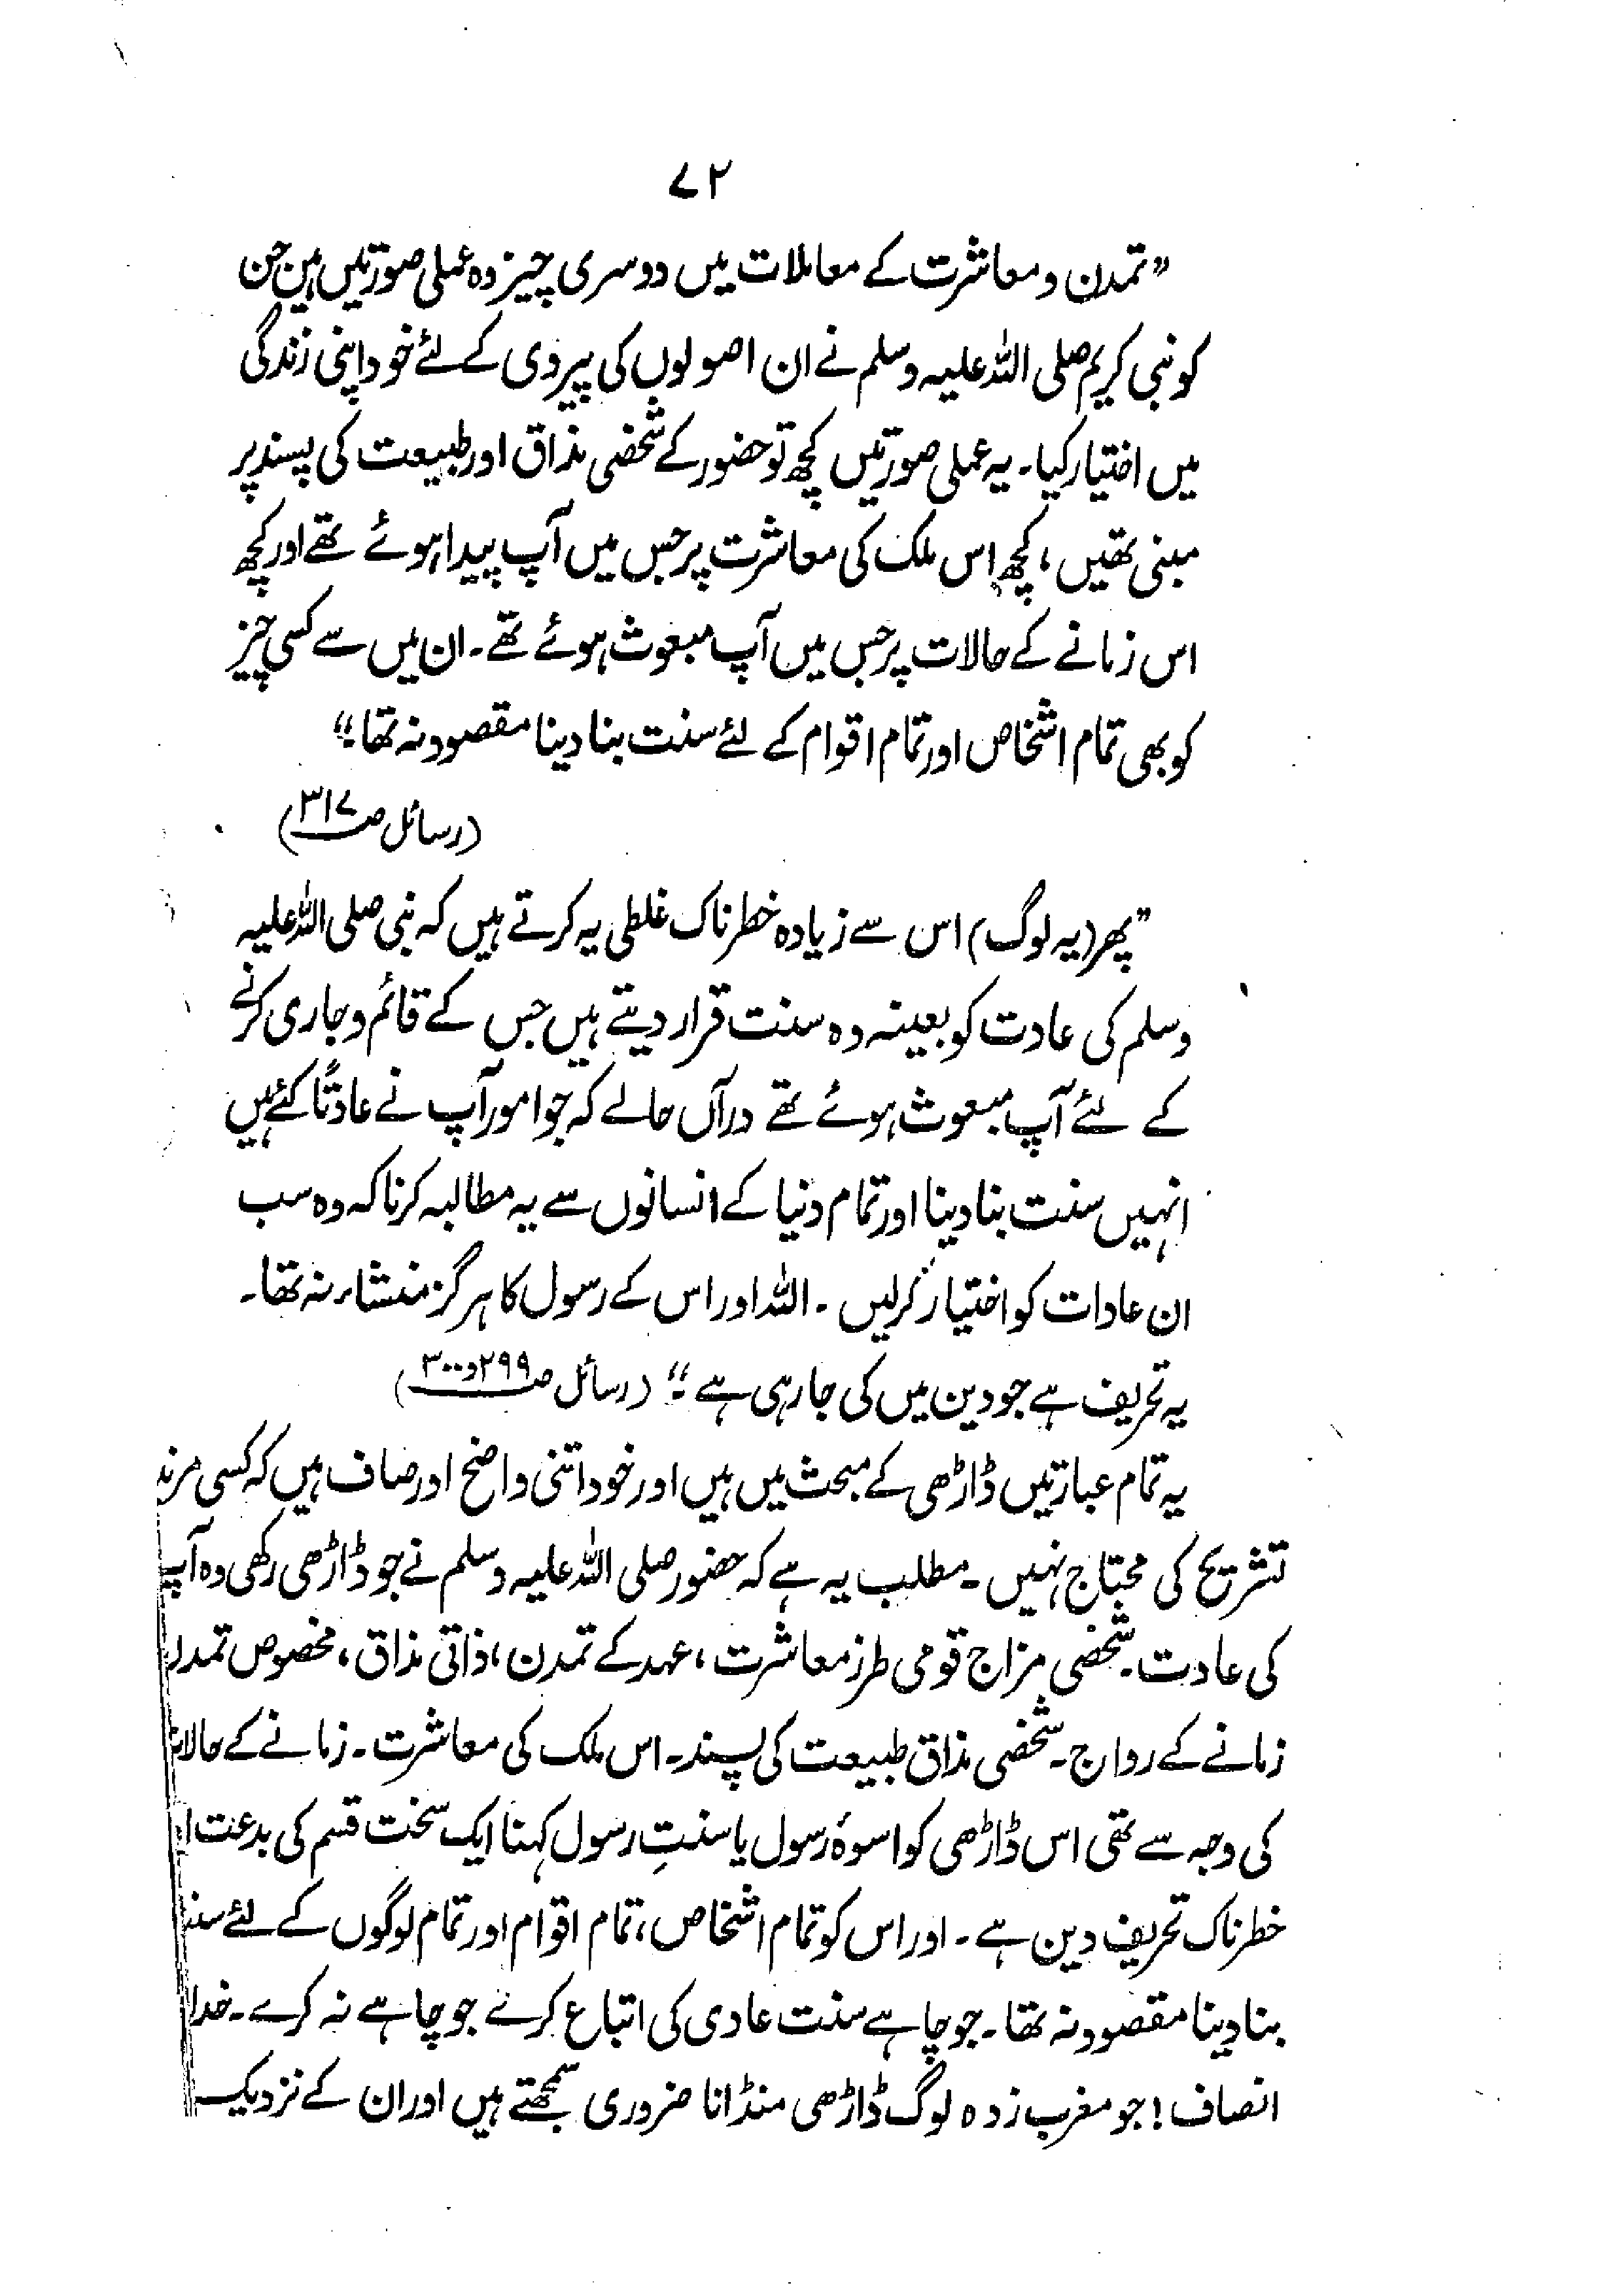 ۷۲
"تمدن و معاشرت کے معاملات میں دوسری چیز وہ عملی صورتیں ہیں جن
کو نبی کریم صلی اللہ علیہ وسلم نے ان اصولوں کی پیروی کے لئے خود اپنی زندگی
میں اختیار کیا۔ یہ عملی صورتیں کچھ تو حضور کے شخصی مذاق اور طبیعت کی پسند پر
مبنی تھیں، کچھ اس ملک کی معاشرت پر جس میں آپ پیدا ہوئے تھے اور کچھ
اس زمانے کے حالات پر جس میں آپ مبعوث ہوئے تھے۔ ان میں سے کسی چیز
کو بھی تمام اشخاص اور تمام اقوام کے لئے سنت بنا دینا مقصود نہ تھا۔"
(رسائل ص ۳۱۷)
"پھر (یہ لوگ) اس سے زیادہ خطرناک غلطی یہ کرتے ہیں کہ نبی صلی اللہ علیہ
وسلم کی عادت کو بعینہ وہ سنت قرار دیتے ہیں جس کے قائم و جاری کرنے
کے لئے آپ مبعوث ہوئے تھے درآں حالے کہ جو امور آپ نے عادتًا کئے ہیں
انہیں سنت بنا دینا اور تمام دنیا کے انسانوں سے یہ مطالبہ کرنا کہ وہ سب
ان عادات کو اختیار کرلیں۔ اللہ اور اس کے رسول کا ہرگز منشاء نہ تھا۔
یہ تحریف ہے جو دین میں کی جا رہی ہے۔" (رسائل ص ۲۹۹ و ۳۰۰)
یہ تمام عبارتیں ڈاڑھی کے مبحث میں ہیں اور خود اتنی واضح اور صاف ہیں کہ کسی
تشریح کی محتاج نہیں۔ مطلب یہ ہے کہ حضور صلی اللہ علیہ وسلم نے جو ڈاڑھی رکھی وہ آپ
کی عادت۔ شخصی مزاج قومی طرز معاشرت، عہد کے تمدن، ذاتی مذاق، مخصوص
زمانے کے رواج۔ شخصی مذاق طبیعت کی پسند۔ اس ملک کی معاشرت۔ زمانے کے
کی وجہ سے تھی اس ڈاڑھی کو اسوۂ رسول یا سنتِ رسول کہنا ایک سخت قسم کی بدعت
خطرناک تحریف دین ہے۔ اور اس کو تمام اشخاص، تمام اقوام اور تمام لوگوں کے لئے
بنا دینا مقصود نہ تھا۔ جو چاہے سنت عادی کی اتباع کرے جو چاہے نہ کرے۔ خدا
انصاف! جو مغرب زدہ لوگ ڈاڑھی منڈانا ضروری سمجھتے ہیں اور ان کے نزدیک